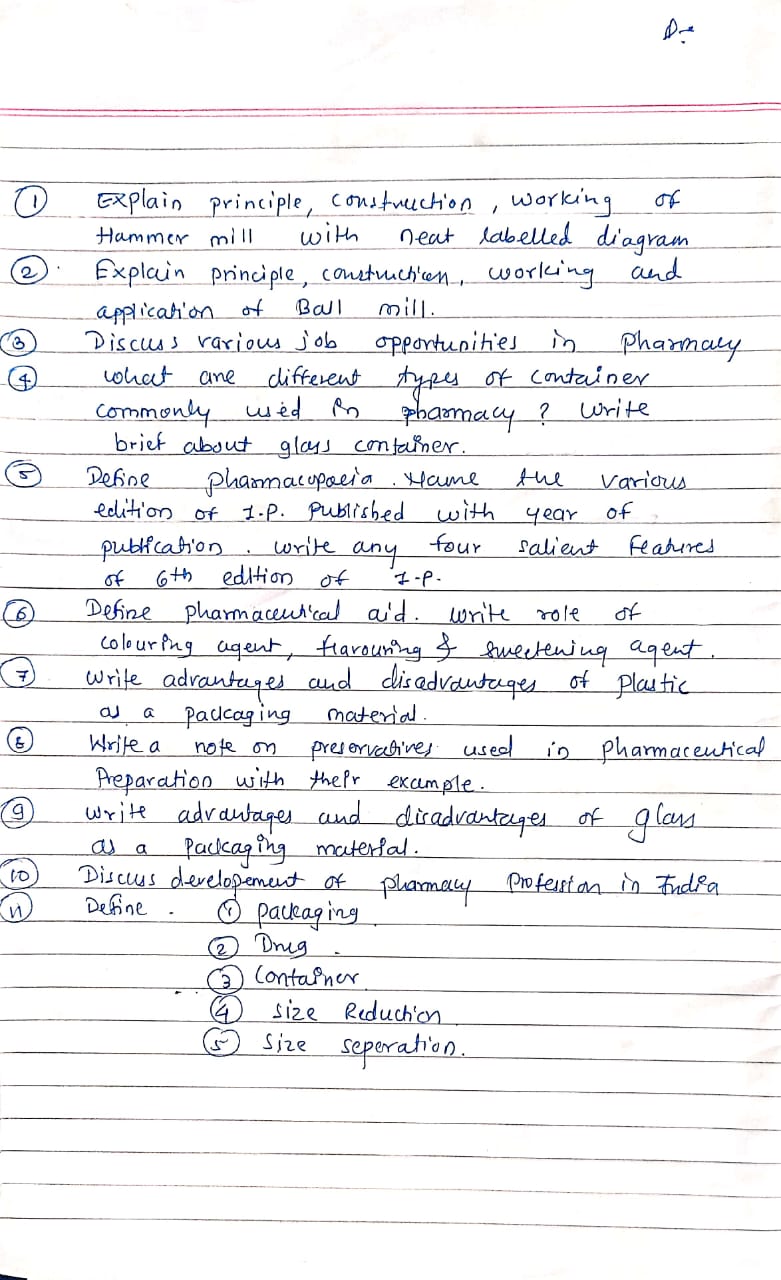 ① Explain principle, construction, working of
Hammer mill with neat labelled diagram
② Explain principle, construction, working and
application of Ball mill.
③ Discuss various job opportunities in pharmacy
④ what are different types of container
commonly used in pharmacy? write
brief about glass container.
⑤ Define pharmacopoeia. Name the various
edition of I.P. published with year of
publication. write any four salient features
of 6th edition of I.P.
⑥ Define pharmaceutical aid. write role of
colouring agent, flavouring & sweetening agent.
⑦ write advantages and disadvantages of plastic
as a packaging material.
⑧ Write a note on preservatives used in pharmaceutical
Preparation with their example.
⑨ write advantages and disadvantages of glass
as a Packaging material.
⑩ Discuss developement of pharmacy Profession in India
⑪ Define. ① packaging
② Drug.
③ Container
④ size Reduction
⑤ size seperation.